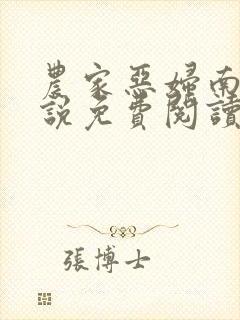 農家惡婦南
說免費閱讀
張博士